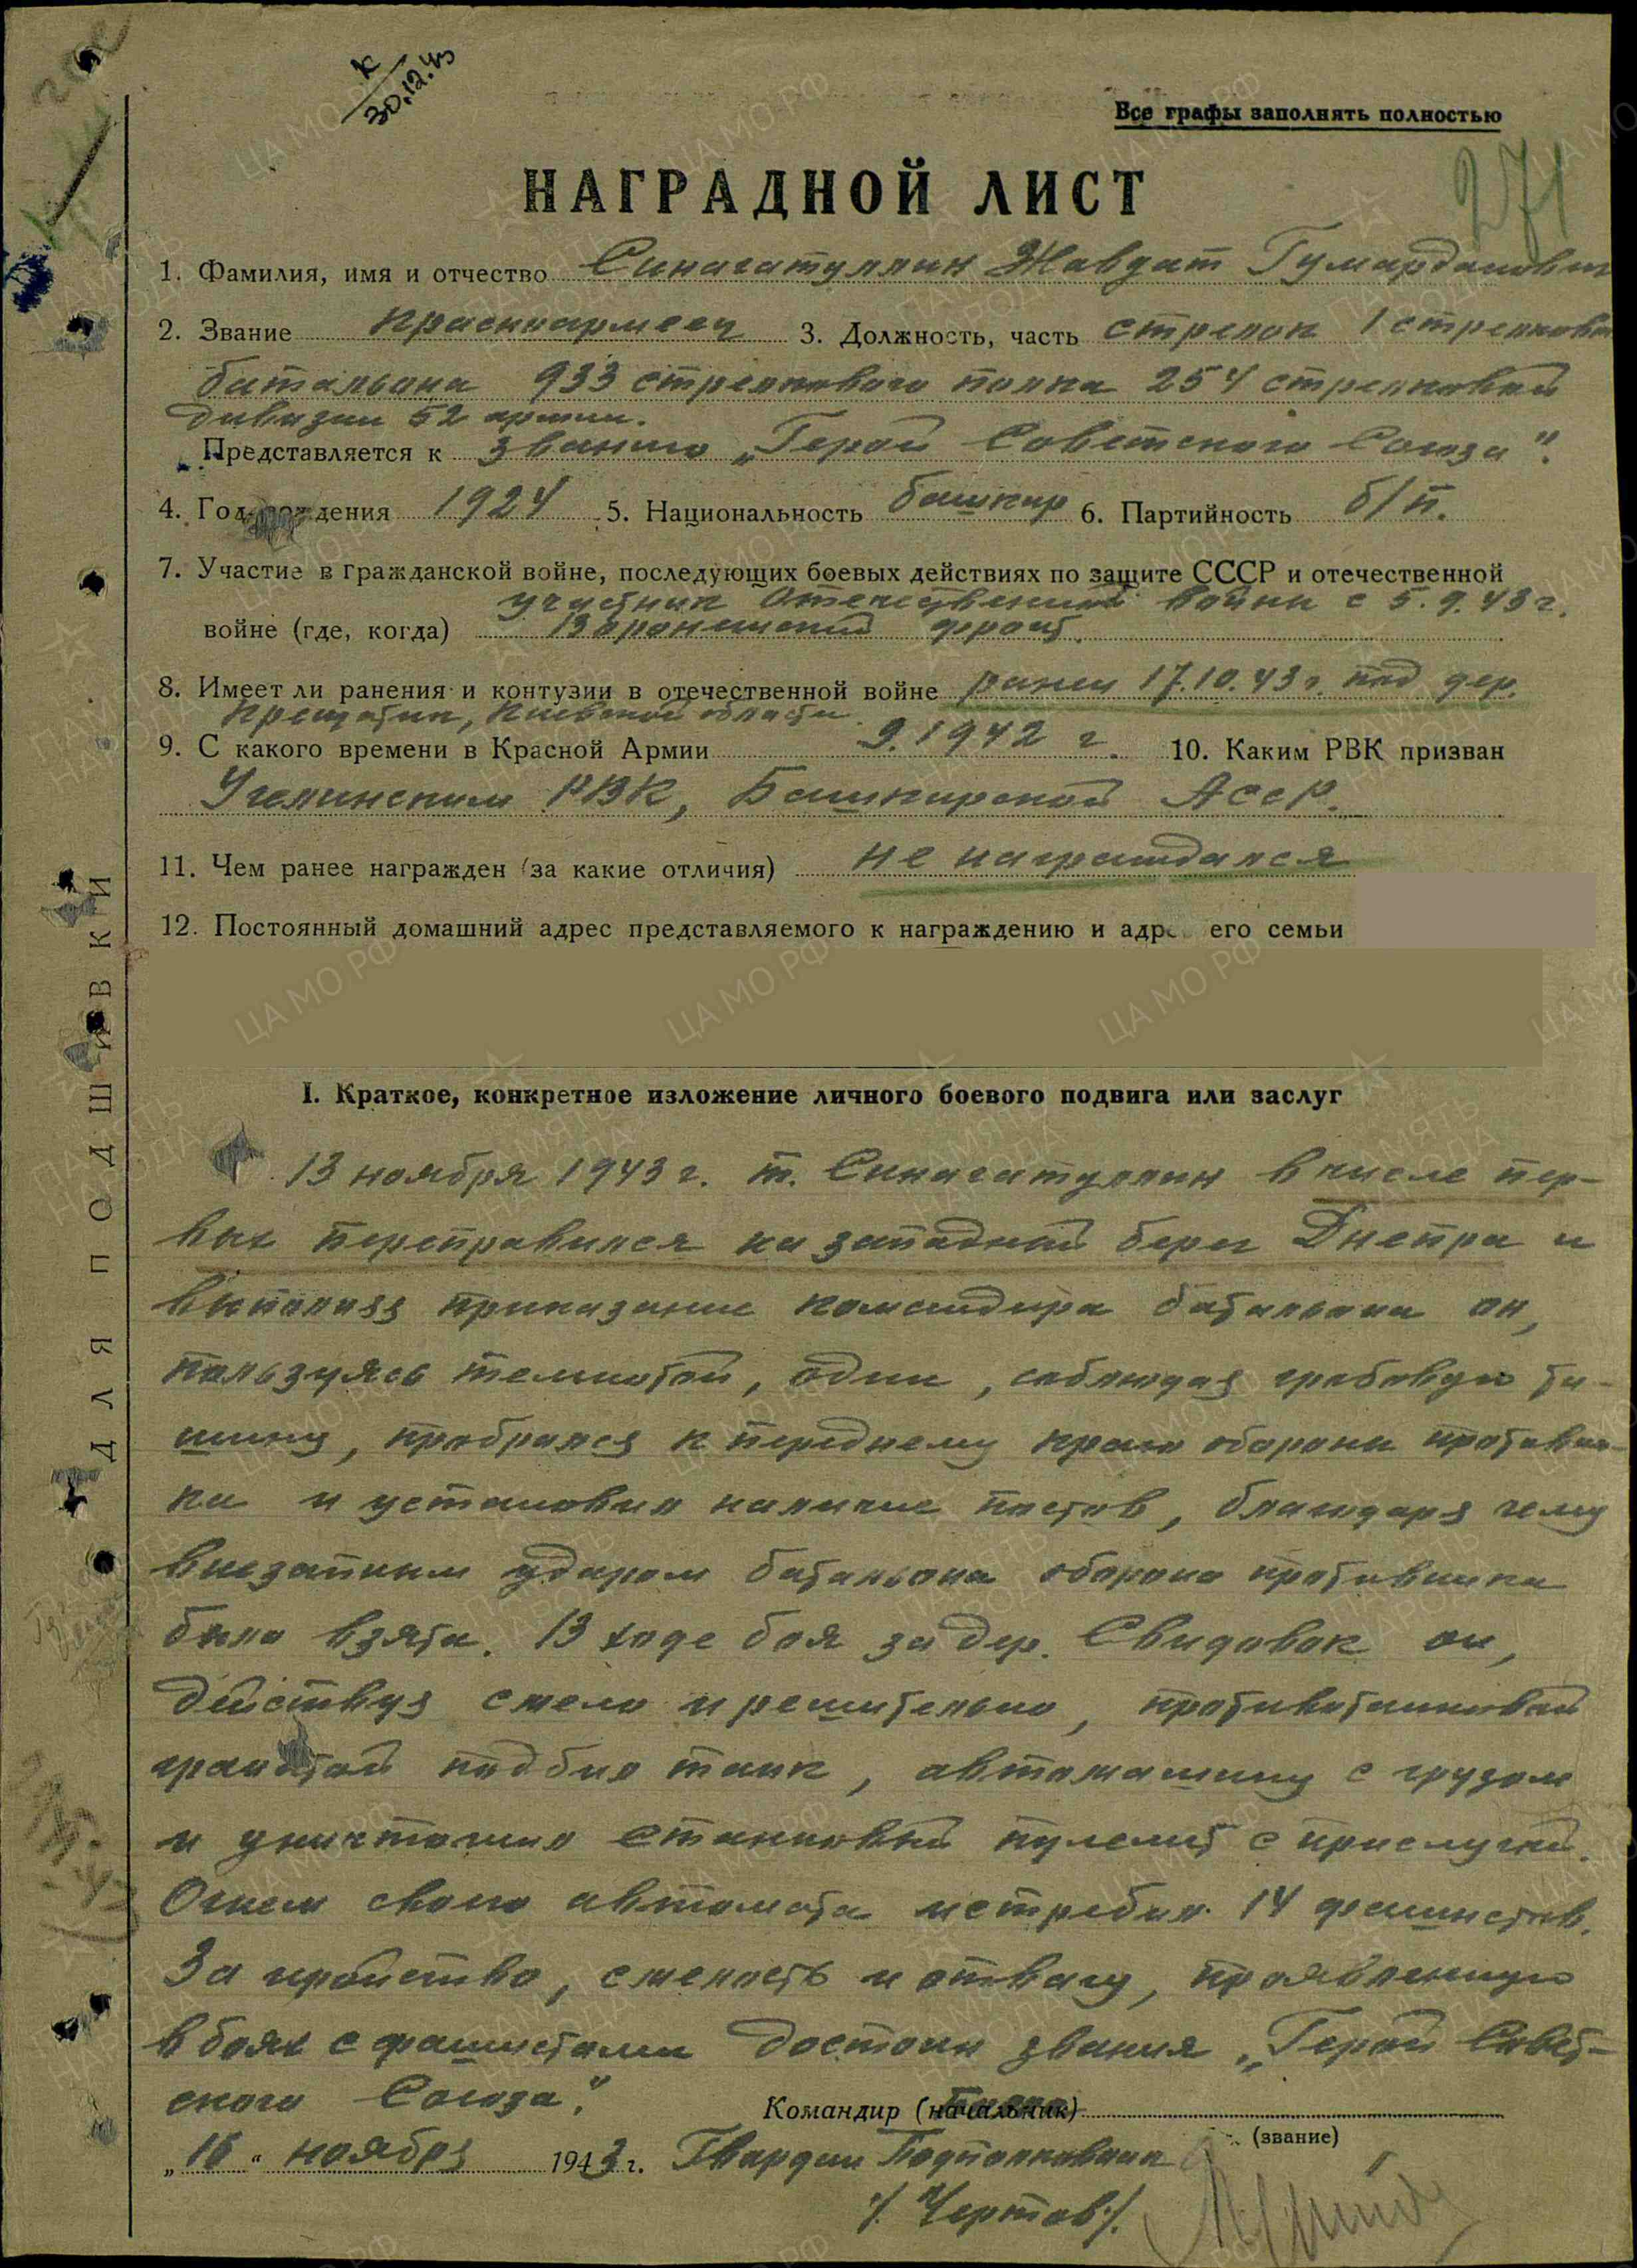 К
30.12.43
Все графы заполнять полностью
271
НАГРАДНОЙ ЛИСТ
1. Фамилия, имя и отчество Синагатуллин Жавдат Гумарданович
2. Звание красноармеец 3. Должность, часть стрелок 1 стрелкового
батальона 933 стрелкового полка 254 стрелковой
дивизии 52 армии.
Представляется к званию „Герой Советского Союза".
4. Год рождения 1924 5. Национальность башкир 6. Партийность б/п.
7. Участие в гражданской войне, последующих боевых действиях по защите СССР и отечественной
участник Отечественной войны с 5.9.43 г.
войне (где, когда) Воронежский фронт.
8. Имеет ли ранения и контузии в отечественной войне ранен 17.10.43 г. под дер.
Крещатик, Киевской области.
9. С какого времени в Красной Армии 9.1942 г. 10. Каким РВК призван
Учалинским РВК, Башкирской АССР.
11. Чем ранее награжден (за какие отличия) не награждался
12. Постоянный домашний адрес представляемого к награждению и адрес его семьи
I. Краткое, конкретное изложение личного боевого подвига или заслуг
13 ноября 1943 г. т. Синагатуллин в числе пер-
вых переправился на западный берег Днепра и
выполняя приказание командира батальона он,
пользуясь темнотой, один, соблюдая гробовую ти-
шину, пробрался к переднему краю обороны противни-
ка и установил наличие постов, благодаря чему
внезапным ударом батальона оборона противника
была взята. В ходе боя за дер. Свидовок он,
действуя смело и решительно, противотанковой
гранатой подбил танк, автомашину с грузом
и уничтожил станковый пулемет с прислугой.
Огнем своего автомата истребил 14 фашистов.
За геройство, смелость и отвагу, проявленную
в боях с фашистами достоин звания „Герой Совет-
ского Союза".
Командир (начальник)
(звание)
„16" ноября 1943 г. Гвардии Подполковник
/Чертов/.
ДЛЯ ПОДШИВКИ
ЦАМО РФ
ПАМЯТЬ НАРОДА